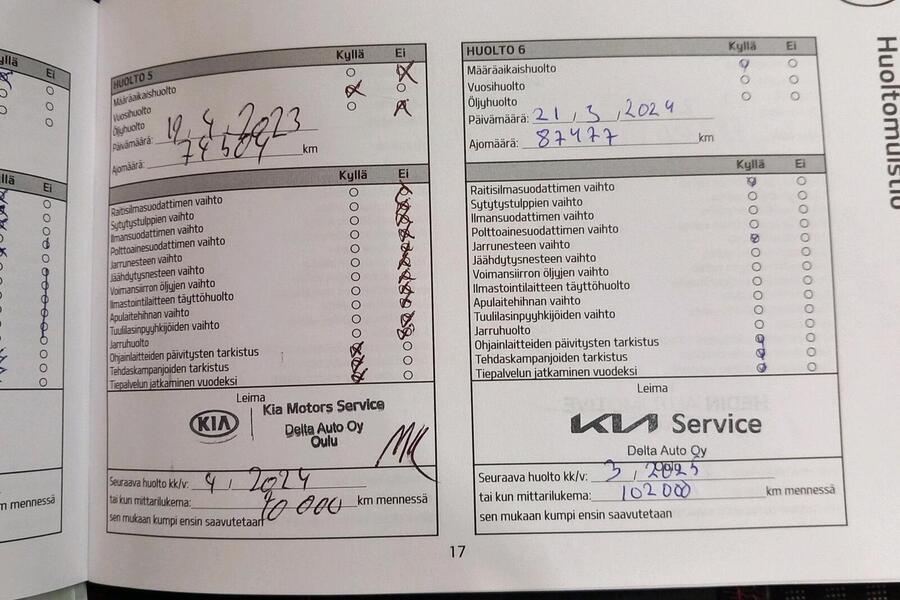 yllä Ei
llä Ei
m mennessä
Kyllä Ei
HUOLTO 5
Määräaikaishuolto
Vuosihuolto
Öljyhuolto
Päivämäärä: 19, 4, 2023
Ajomäärä: 74504 km
Kyllä Ei
Raitisilmasuodattimen vaihto
Sytytystulppien vaihto
Ilmansuodattimen vaihto
Polttoainesuodattimen vaihto
Jarrunesteen vaihto
Jäähdytysnesteen vaihto
Voimansiirron öljyjen vaihto
Ilmastointilaitteen täyttöhuolto
Apulaitehihnan vaihto
Tuulilasinpyyhkijöiden vaihto
Jarruhuolto
Ohjainlaitteiden päivitysten tarkistus
Tehdaskampanjoiden tarkistus
Tiepalvelun jatkaminen vuodeksi
Leima
KIA
Kia Motors Service
Delta Auto Oy
Oulu
Seuraava huolto kk/v: 4, 2024
tai kun mittarilukema: 90 000 km mennessä
sen mukaan kumpi ensin saavutetaan
Kyllä Ei
HUOLTO 6
Määräaikaishuolto
Vuosihuolto
Öljyhuolto
Päivämäärä: 21, 3, 2024
Ajomäärä: 87477 km
Kyllä Ei
Raitisilmasuodattimen vaihto
Sytytystulppien vaihto
Ilmansuodattimen vaihto
Polttoainesuodattimen vaihto
Jarrunesteen vaihto
Jäähdytysnesteen vaihto
Voimansiirron öljyjen vaihto
Ilmastointilaitteen täyttöhuolto
Apulaitehihnan vaihto
Tuulilasinpyyhkijöiden vaihto
Jarruhuolto
Ohjainlaitteiden päivitysten tarkistus
Tehdaskampanjoiden tarkistus
Tiepalvelun jatkaminen vuodeksi
Leima
KIA Service
Delta Auto Oy
Oulu
Seuraava huolto kk/v: 3, 2025
tai kun mittarilukema: 102 000 km mennessä
sen mukaan kumpi ensin saavutetaan
Huoltomuistio
17